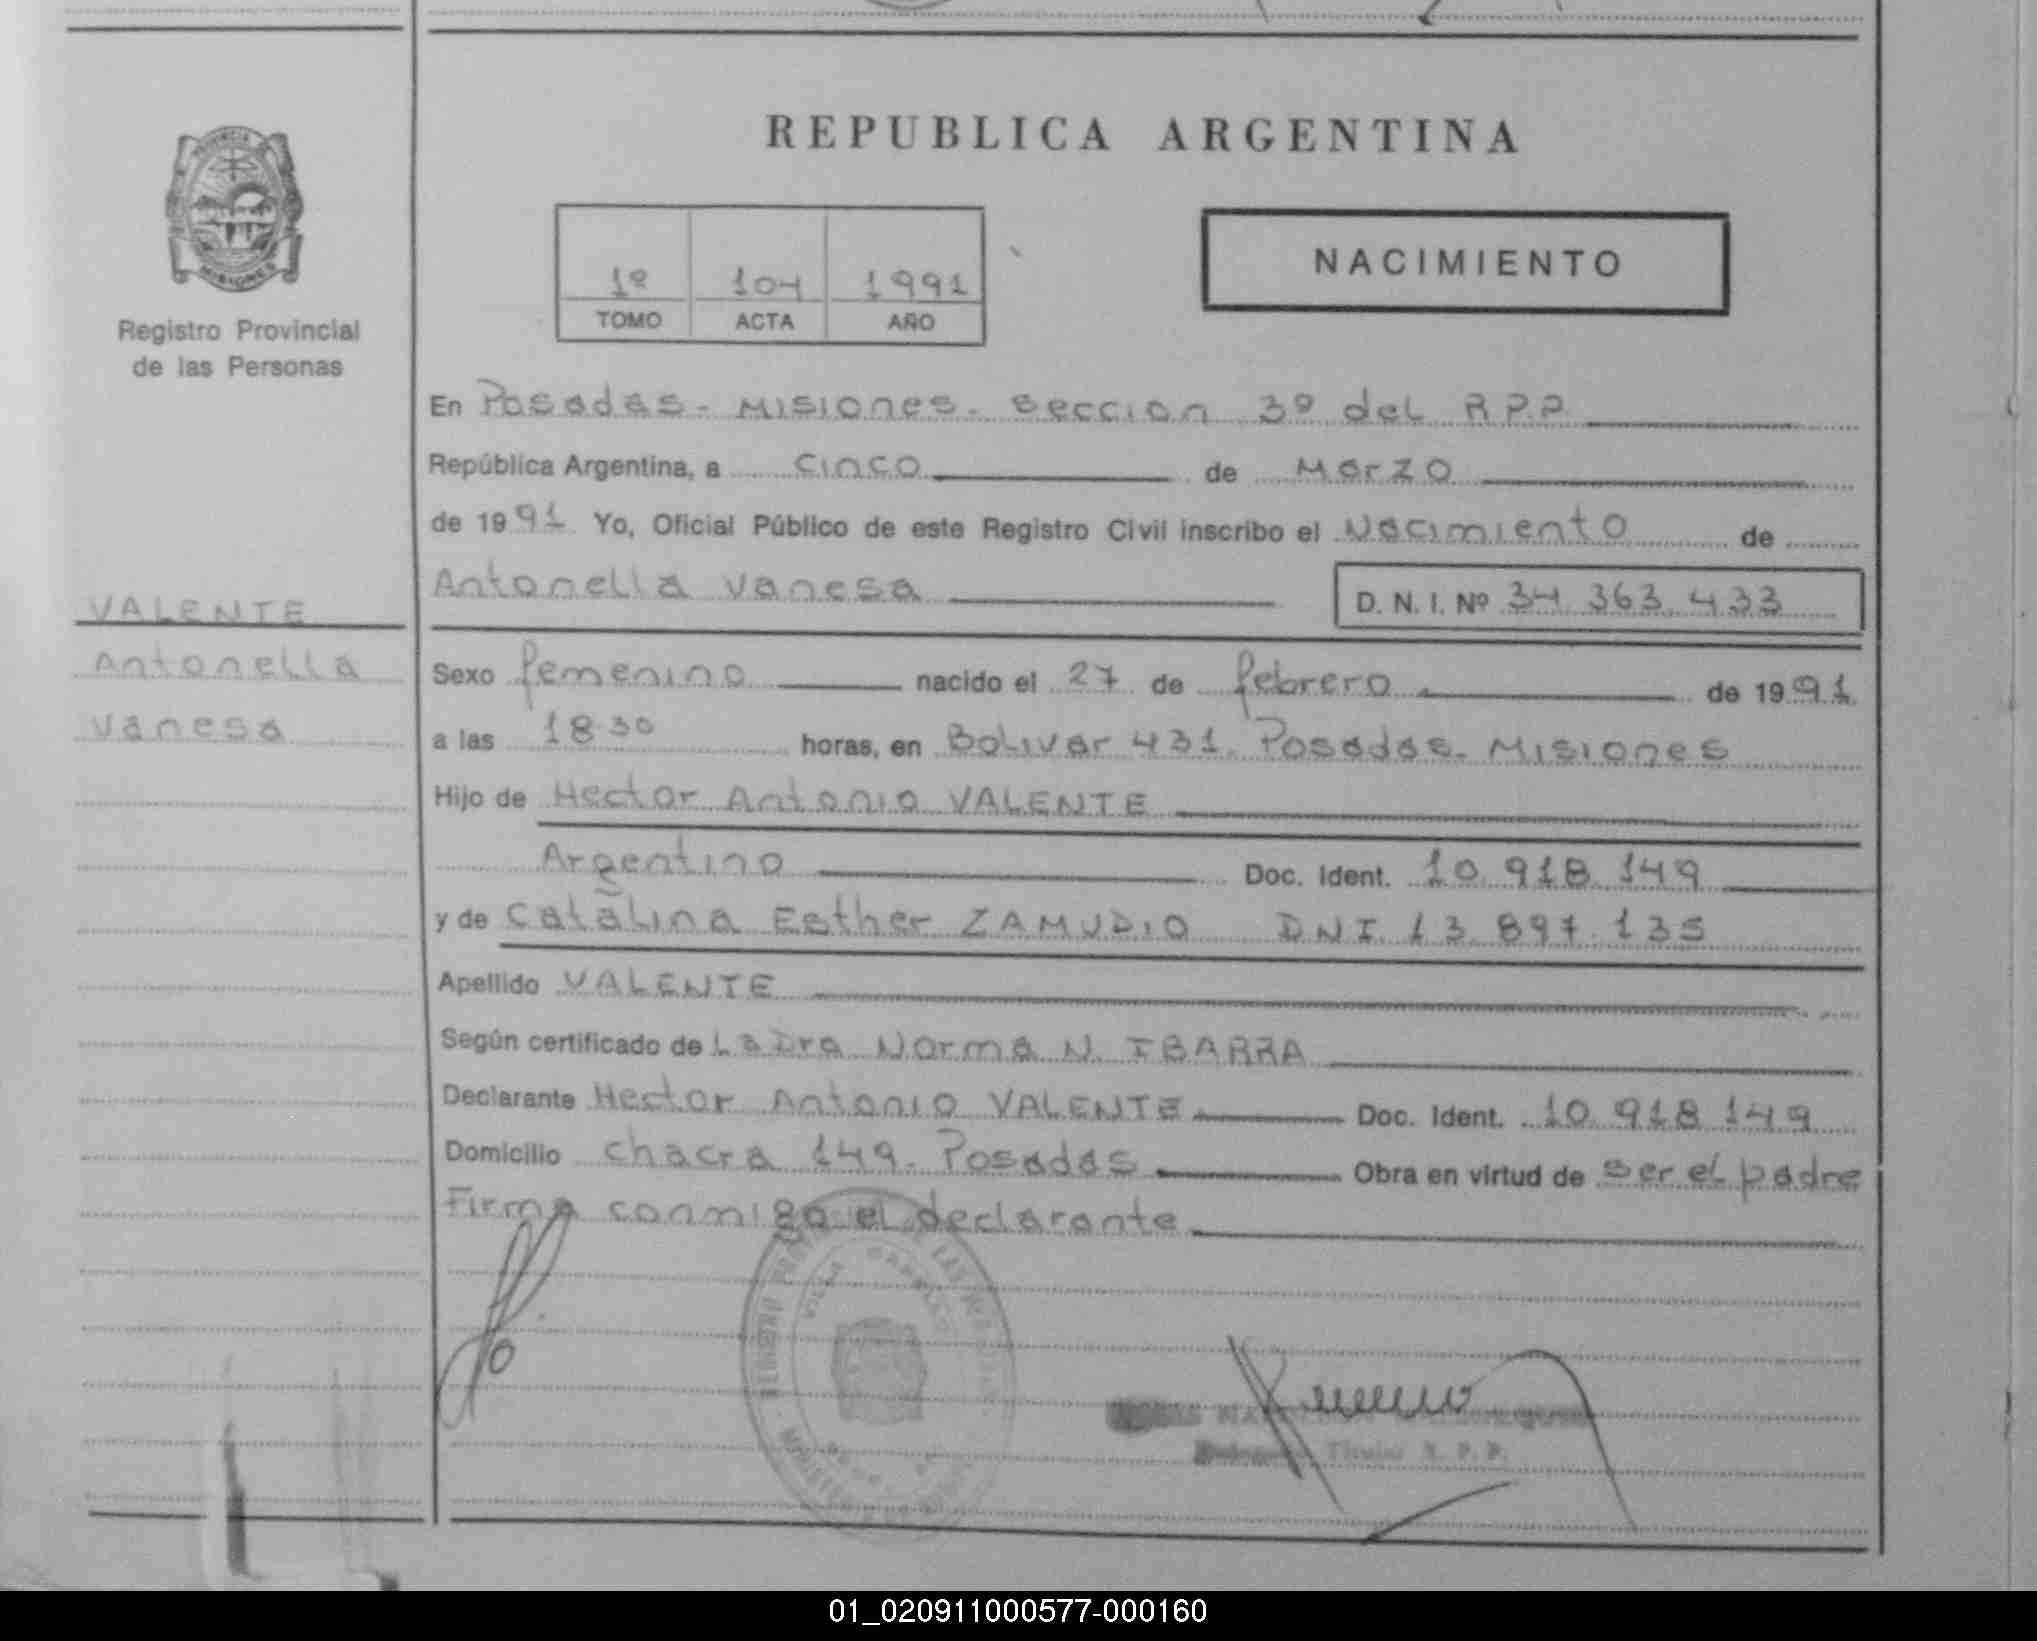 REPUBLICA ARGENTINA
PROVINCIA
MISIONES
Registro Provincial
de las Personas
1º 104 1991
TOMO ACTA AÑO
NACIMIENTO
En Posadas - Misiones. seccion 3º del R.P.P.
República Argentina, a cinco de Marzo
de 1991 Yo, Oficial Público de este Registro Civil inscribo el Nacimiento de
Antonella Vanesa D. N. I. Nº 34.363.433
VALENTE
Antonella
Vanesa
Sexo femenino nacido el 27 de febrero de 1991
a las 18.30 horas, en Bolivar 431. Posadas - Misiones
Hijo de Hector Antonio VALENTE
Argentino Doc. Ident. 10.918.149
y de Catalina Esther ZAMUDIO DNI 13.897.135
Apellido VALENTE
Según certificado de La Dra Norma N. IBARRA
Declarante Hector Antonio VALENTE Doc. Ident. 10.918.149
Domicilio chacra 149. Posadas Obra en virtud de ser el padre
Firma conmigo el declarante
DE LAS
VILLA CABELLO
Titular R. P. P.
01_020911000577-000160